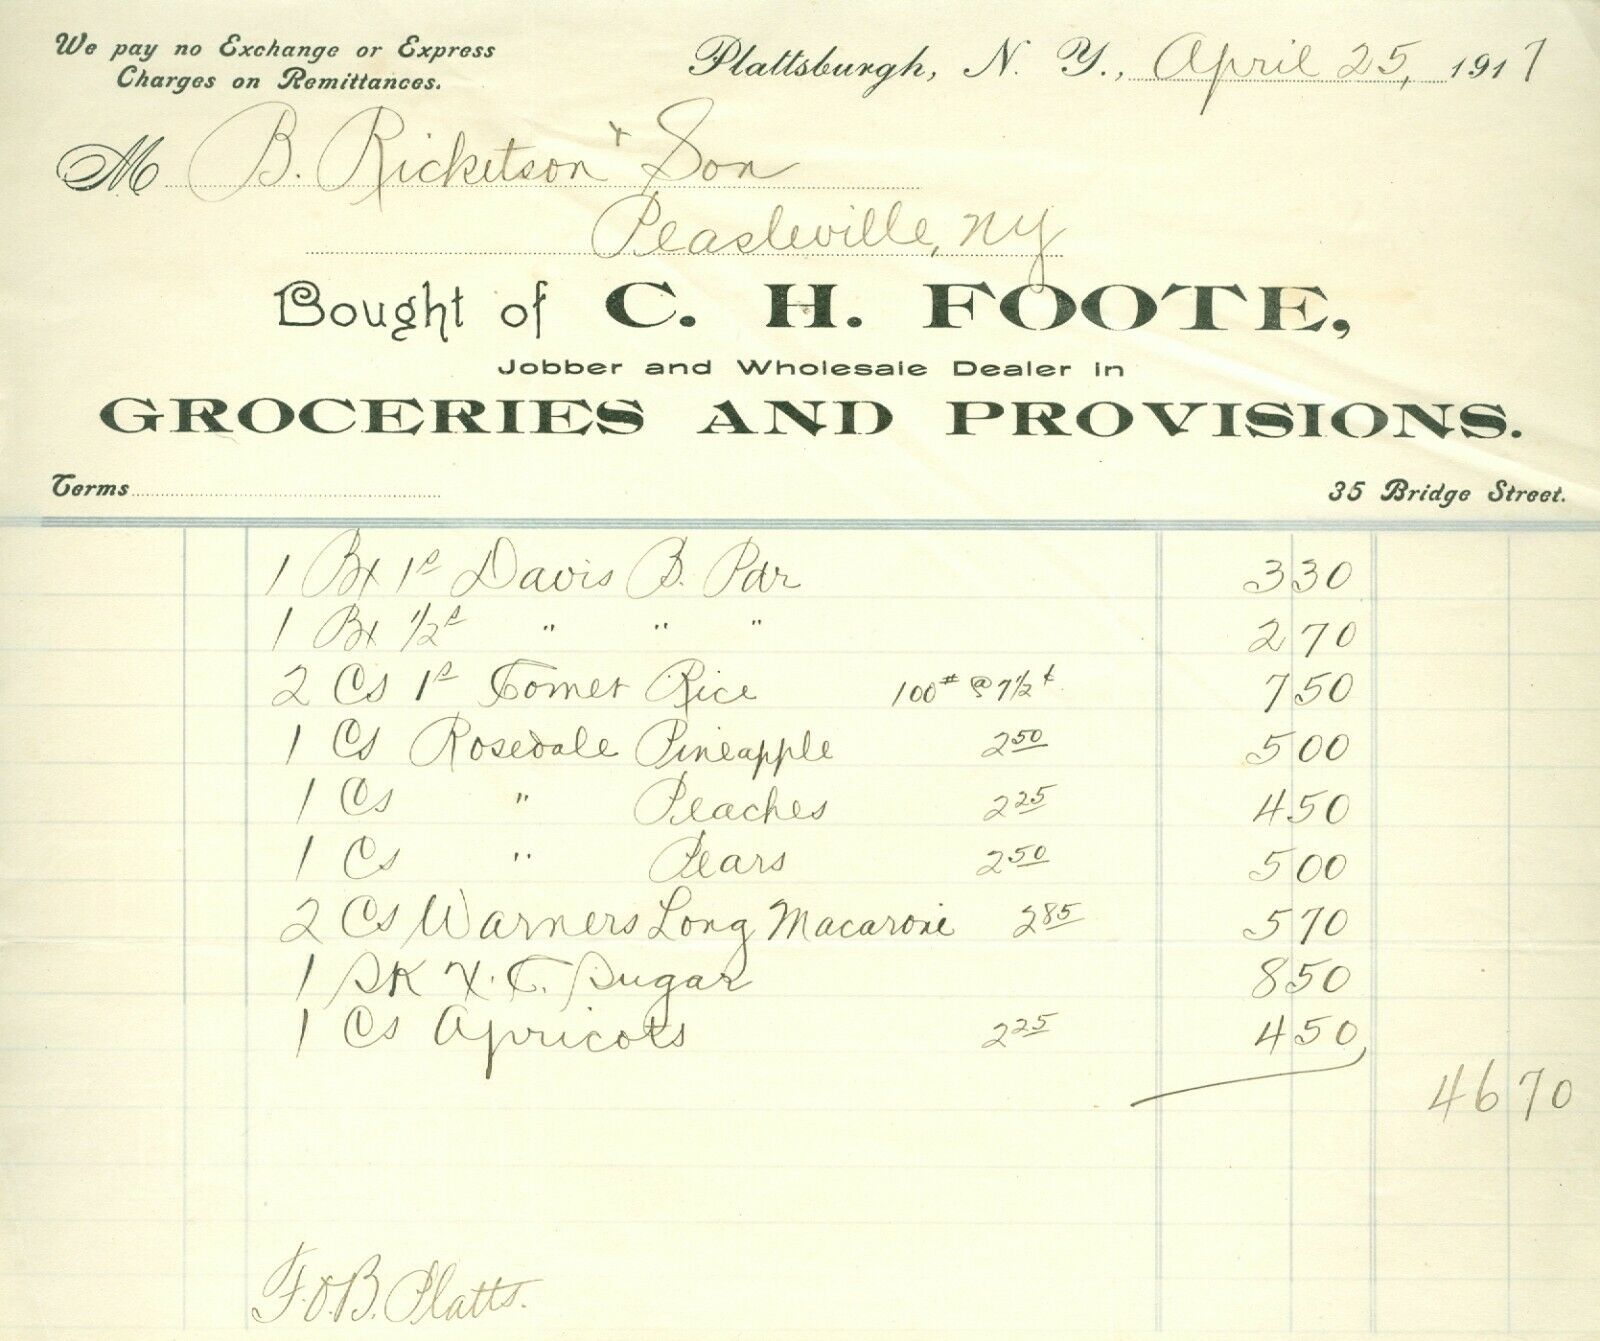 We pay no Exchange or Express
Charges on Remittances.
Plattsburgh, N. Y., April 25, 1917
M B. Ricketson & Son
Peasleville, NY
Bought of C. H. FOOTE,
Jobber and Wholesale Dealer in
GROCERIES AND PROVISIONS.
Terms 35 Bridge Street.
1 Bx 1s Davis B. Pdr 3 30
1 Bx 1/2s " " " 2 70
2 Cs 1s Comet Rice 100# @ 7 1/2¢ 7 50
1 Cs Rosedale Pineapple 2 50 5 00
1 Cs " Peaches 2 25 4 50
1 Cs " Pears 2 50 5 00
2 Cs Warners Long Macaroni 2 85 5 70
1 SK X.C. Sugar 8 50
1 Cs Apricots 2 25 4 50
46 70
F.O.B. Platts.